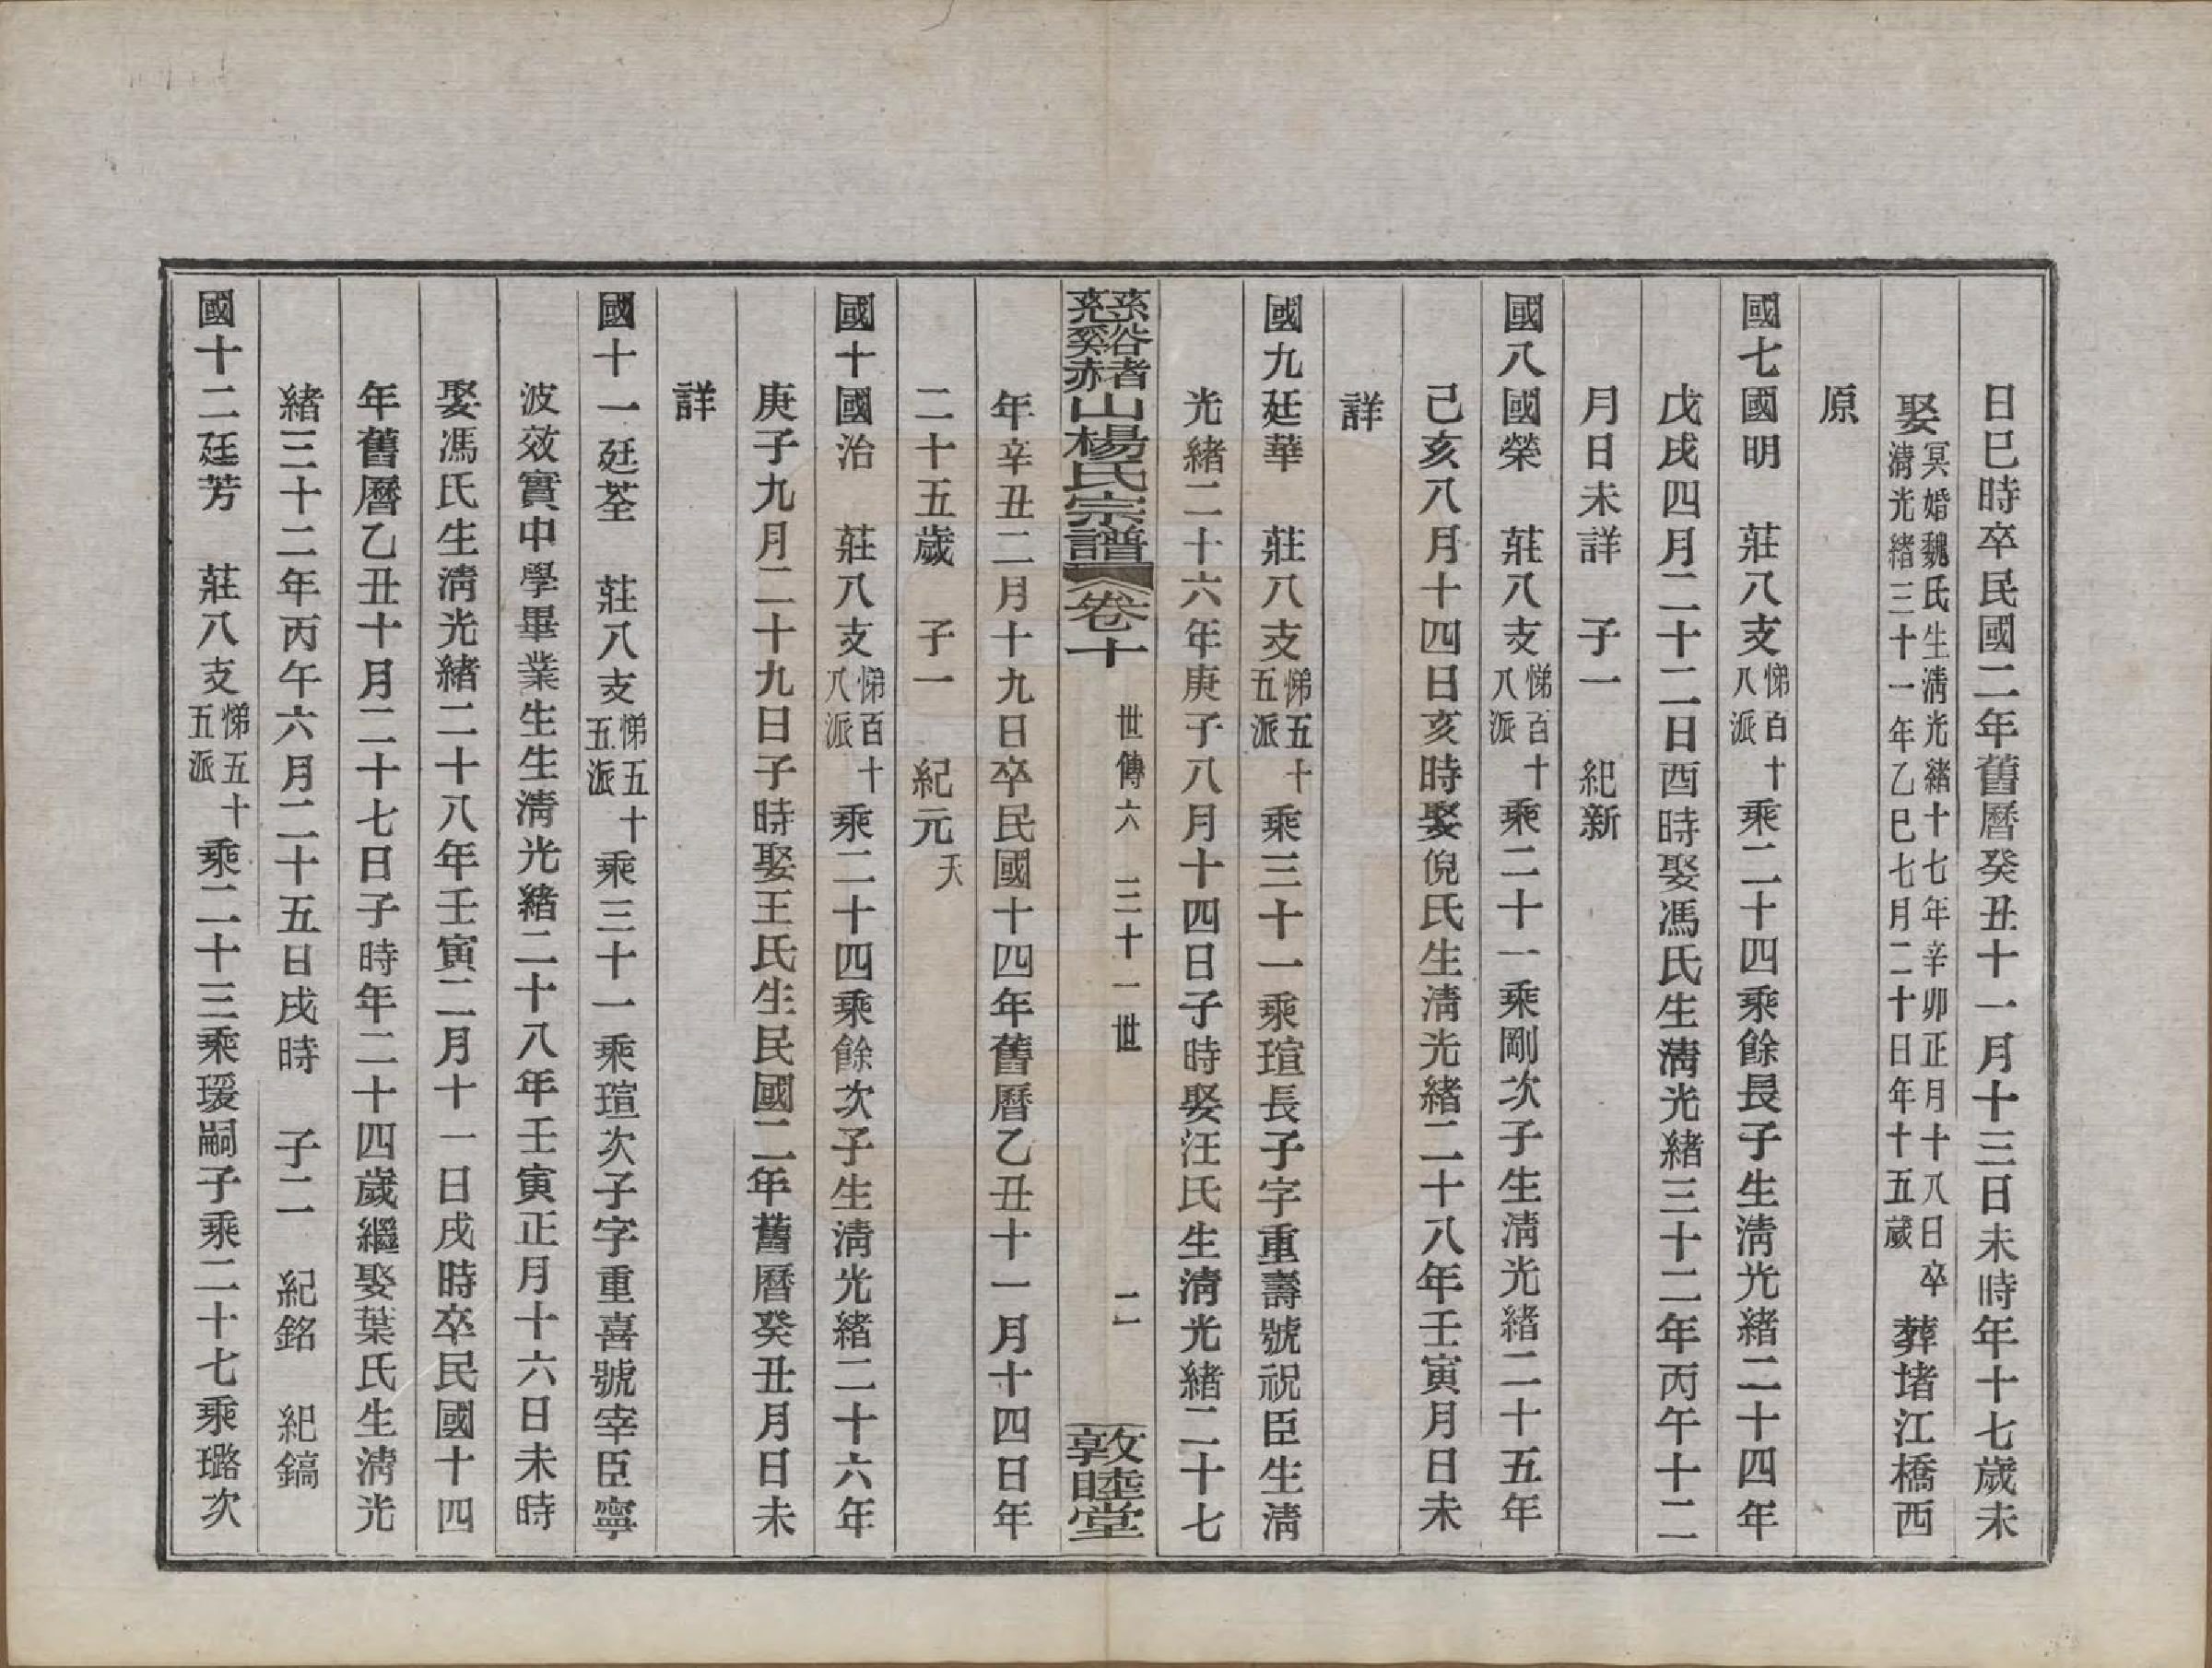 日巳時卒民國二年舊曆癸丑十一月十三日未時年十七歲未
娶冥婚魏氏生淸光緒十七年辛卯正月十八日卒淸光緒三十一年乙巳七月二十日年十五歲 葬堵江橋西
原
國七國明 莊八支悌百十八派乘二十四乘餘長子生淸光緒二十四年
戊戌四月二十二日酉時娶馮氏生淸光緒三十二年丙午十二
月日未詳 子一 紀新
國八國榮 莊八支悌百十八派乘二十一乘剛次子生淸光緒二十五年
己亥八月十四日亥時娶倪氏生淸光緒二十八年壬寅月日未
詳
國九廷華 莊八支悌五十五派乘三十一乘瑄長子字重壽號祝臣生淸
光緒二十六年庚子八月十四日子時娶汪氏生淸光緒二十七
慈谿赭山楊氏宗譜 卷十 世傳六 三十一世 二 敦睦堂
年辛丑二月十九日卒民國十四年舊曆乙丑十一月十四日年
二十五歲 子一 紀元夭
國十國治 莊八支悌百十八派乘二十四乘餘次子生淸光緒二十六年
庚子九月二十九日子時娶王氏生民國二年舊曆癸丑月日未
詳
國十一廷荃 莊八支悌五十五派乘三十一乘瑄次子字重喜號宰臣寧
波效實中學畢業生生淸光緒二十八年壬寅正月十六日未時
娶馮氏生淸光緒二十八年壬寅二月十一日戌時卒民國十四
年舊曆乙丑十月二十七日子時年二十四歲繼娶葉氏生淸光
緒三十二年丙午六月二十五日戌時 子二 紀銘 紀鎬
國十二廷芳 莊八支悌五十五派乘二十三乘瑗嗣子乘二十七乘璐次